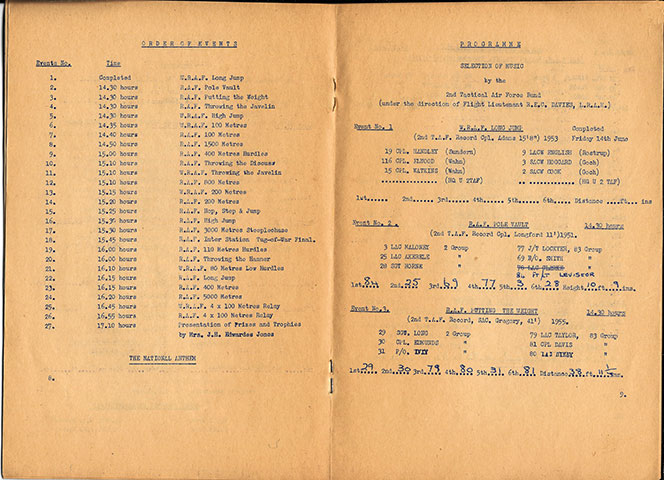 ORDER OF EVENTS
Events No. Time
1. Completed W.R.A.F. Long Jump
2. 14.30 hours R.A.F. Pole Vault
3. 14.30 hours R.A.F. Putting the Weight
4. 14.30 hours R.A.F. Throwing the Javelin
5. 14.30 hours W.R.A.F. High Jump
6. 14.35 hours W.R.A.F. 100 Metres
7. 14.40 hours R.A.F. 100 Metres
8. 14.50 hours R.A.F. 1500 Metres
9. 15.00 hours R.A.F. 400 Metres Hurdles
10. 15.10 hours R.A.F. Throwing the Discus
11. 15.10 hours W.R.A.F. Throwing the Javelin
12. 15.10 hours R.A.F. 800 Metres
13. 15.15 hours W.R.A.F. 200 Metres
14. 15.20 hours R.A.F. 200 Metres
15. 15.25 hours R.A.F. Hop, Step & Jump
16. 15.30 hours R.A.F. High Jump
17. 15.30 hours R.A.F. 3000 Metres Steeplechase
18. 15.45 hours R.A.F. Inter Station Tug-of-War Final.
19. 16.00 hours R.A.F. 110 Metres Hurdles
20. 16.00 hours R.A.F. Throwing the Hammer
21. 16.10 hours W.R.A.F. 80 Metres Low Hurdles
22. 16.15 hours R.A.F. Long Jump
23. 16.15 hours R.A.F. 400 Metres
24. 16.20 hours R.A.F. 5000 Metres
25. 16.45 hours W.R.A.F. 4 x 100 Metres Relay
26. 16.55 hours R.A.F. 4 x 100 Metres Relay
27. 17.10 hours Presentation of Prizes and Trophies
by Mrs. J.H. Edwardes Jones
THE NATIONAL ANTHEM
8.
PROGRAMME
SELECTION OF MUSIC
by the
2nd Tactical Air Force Band
(under the direction of Flight Lieutenant R.E.C. DAVIES, L.R.A.M.)
Event No. 1 W.R.A.F. LONG JUMP Completed
(2nd T.A.F. Record Cpl. Adams 15'8") 1953 Friday 14th June
19 CPL HANDLEY (Sundern) 9 LACW ENGLISH (Rostrup)
116 CPL ELWOOD (Wahn) 3 SACW HOGGARD (Goch)
15 CPL WATKINS (Wahn) 2 SACW COOK (Goch)
.............. (HQ U 2TAF) .............. (HQ U 2 TAF)
1st...... 2nd..... 3rd..... 4th..... 5th..... 6th..... Distance ...ft... ins
Event No. 2 R.A.F. POLE VAULT 14.30 hours
(2nd T.A.F. Record Cpl. Longford 11')1951.
3 LAC MALONEY 2 Group 77 J/T LOCKYER, 83 Group
25 LAC AKEHRLE " 69 F/O. SMITH "
28 SGT HORNE " 78 LAC CLARKE "
84 Pt/T LEVISEUR
1st 84 2nd 25 3rd 69 4th 77 5th 3 6th 28 Height 10 ft 9 ins.
Event No.3. R.A.F. PUTTING THE WEIGHT 14.30 hours
(2nd T.A.F. Record, SAC. Gregory, 41') 1955.
29 SGT. LONG 2 Group 79 LAC TAYLOR, 83 Group
30 CPL EDMUNDS " 81 CPL DAVIS "
31 F/O. "  80 "
1st 29 2nd 30 3rd 79 4th 80 5th 31 6th 81 Distance 38 ft 11½ ins.
9.